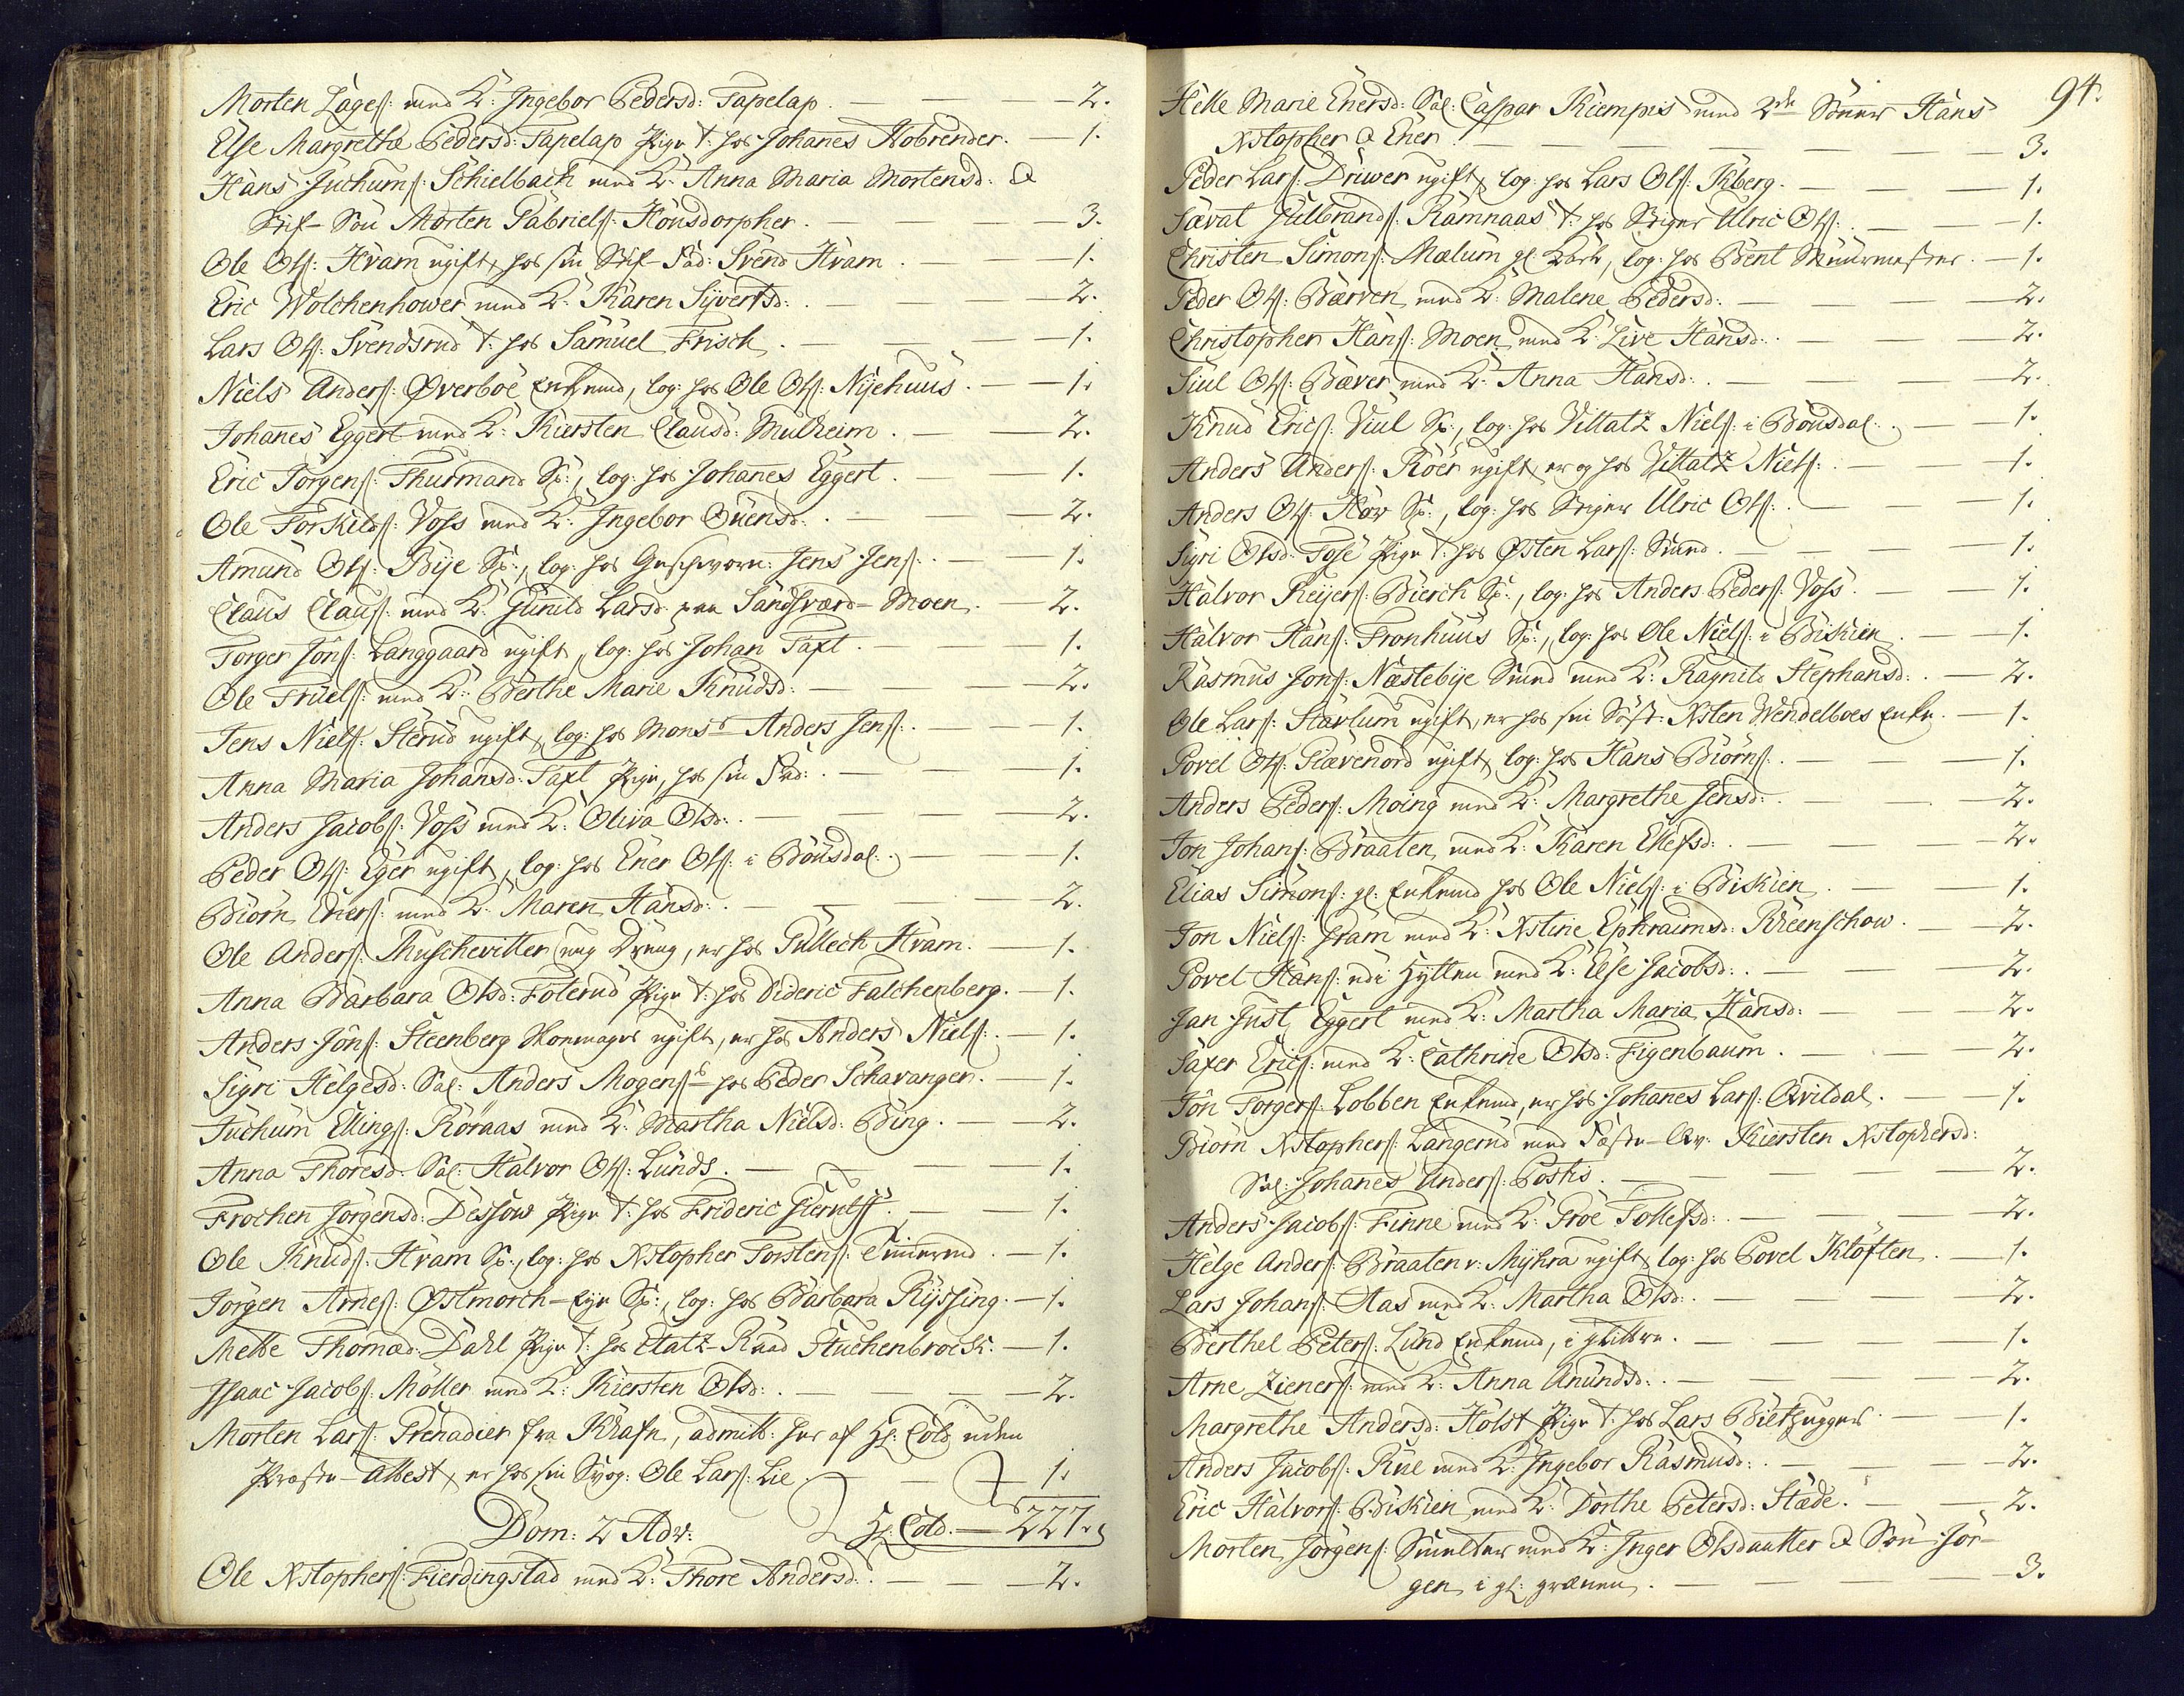 Morten Lages: med K: Ingebor Pedersd: Tapelap. — 2.
Else Margrethe Pedersd: Tapelap Pige t: hos Johanes Hobrender. — 1.
Hans Juchums: Schielbach med K: Anna Maria Mortensd: &
Stif-Sön Morten Gabriels: Hönsdorpher. — 3.
Ole Ols: Hvam ugift, hos sin Stif-Fad: Svend Hvam. — 1.
Eric Wolchenhower med K: Karen Syvertsd: — 2.
Lars Ols: Svendsrud t: hos Samuel Frisch. — 1.
Niels Anders: Øverboe Enkemd, log: hos Ole Ols: Nyehuus. — 1.
Johanes Eggert med K: Kiersten Clausd: Mulheim. — 2.
Eric Jörgens: Thurmand Sk:, log: hos Johanes Eggert. — 1.
Ole Torkilds: Voss med K: Ingebor Ouensd: — 2.
Amund Ols: Bye Sk:, log: hos Geschworn: Jens Jens: — 1.
Claus Claus: med K: Gunild Larsd: paa Sandsværd-Moen. — 2.
Torger Jöns: Langgaard ugift, log: hos Johan Taxt. — 1.
Ole Truels: med K: Berthe Marie Knudsd: — 2.
Jens Niels: Sterud ugift, log: hos Monsr Anders Jens: — 1.
Anna Maria Johansd: Taxt Pige, hos sin Fad: — 1.
Anders Jacobs: Voss med K: Oliva Olsd: — 2.
Peder Ols: Eger ugift, log: hos Ener Ols: i Bönsdal. — 1.
Biörn Eners: med K: Maren Hansd: — 2.
Ole Anders: Muschevitter ung Dreng, er hos Gullech Hvam. — 1.
Anna Barbara Olsd: Foterud Pige t: hos Dideric Falchenberg. — 1.
Anders Jöns: Steenberg Skomager ugift, er hos Anders Niels: — 1.
Sigri Helgesd: Sal: Anders Mogens:s hos Peder Schavanger. — 1.
Juchum Ellings: Röraas med K: Martha Nielsd: Bing. — 2.
Anna Thoresd: Sal: Halvor Ols: Lunds. — 1.
Frochen Jörgensd: Dessow Pige t: hos Frideric Gierutss: — 1.
Ole Knuds: Hvam Sk:, log: hos Xstopher Torstens: — 1.
Jörgen Arnes: Østmorch-eje Sk:, log: hos Barbara Ryssing. — 1.
Mette Thomæd: Dahl Pige t: hos Etatz-Raad Stuchenbrock. — 1.
Isaac Jacobs: Möller med K: Kiersten Olsd: — 2.
Morten Lars: Grenadier fra Khafn, admitt: her af H: Cold uden
Præste-Attest, er hos sin Svog: Ole Lars: Lie. — 1.
Dom: 2 Adv: H: Cold. — 227.
Ole Xstophers: Fierdingstad med K: Thore Andersd: — 2.
94.
Helle Marie Enersd: Sal: Caspar Kiempes med 2de Sönner Hans
Xstopher & Ener. — 3.
Peder Lars: Driwer ugift, log: hos Lars Ols: Kberg. — 1.
Sævat Gulbrands: Ramnaas t: hos Stiger Ulric Ols: — 1.
Christen Simons: Mælum gl: Karl, log: hos Bent Muurmester. — 1.
Peder Ols: Bærven med K: Malene Pedersd: — 2.
Christopher Hans: Moen med K: Live Hansd: — 2.
Siul Ols: Bæver med K: Anna Hansd: — 2.
Knud Erics: Viul Sk:, log: hos Villatz Niels: i Bönsdal. — 1.
Anders Anders: Röer ugift, er og hos Villatz Niels: — 1.
Anders Ols: Höv Sk:, log: hos Stiger Ulric Ols: — 1.
Sigri Olsd: Fose Pige t: hos Østen Lars: Smed. — 1.
Halvor Reijers: Bierch Sk:, log: hos Anders Peders: Voss. — 1.
Halvor Hans: Tronhuus Sk:, log: hos Ole Niels: i Biskien. — 1.
Rasmus Jons: Næstebye Smed med K: Ragnild Stephansd: — 2.
Ole Lars: Stærlum ugift, er hos sin Söst: Xsten Wendelboes Enke. — 1.
Povel Ols: Grævenord ugift, log: hos Hans Biörns: — 1.
Anders Peders: Moing med K: Margrethe Jensd: — 2.
Jon Johans: Braaten med K: Karen Ellefsd: — 2.
Elias Simons: gl: Enkemd hos Ole Niels: i Biskien. — 1.
Jon Niels: Fram med K: Xstine Ephraimsd: Rheenschow. — 2.
Povel Hans: udi Hytten med K: Else Jacobsd: — 2.
Jan Just Eggert med K: Martha Maria Hansd: — 2.
Saxer Erics: med K: Cathrine Olsd: Figenbaum. — 2.
Jön Torgers: Lobben Enkemd, er hos Johanes Lars: Qvildal. — 1.
Biörn Xstophers: Langerud med Fæste-Qv: Kiersten Xstophersd:
Sal: Johanes Anders: Postis. — 2.
Anders Jacobs: Finne med K: Groe Tollefsd: — 2.
Helge Anders: Braaten v: Myhra ugift, log: hos Povel Klöften. — 1.
Lars Johans: Aas med K: Martha Olsd: — 2.
Berthel Peters: Lund Enkemd, i — 1.
Arne Zieners: med K: Anna Amundsd: — 2.
Margrethe Andersd: Holst Pige t: hos Lars Bilthugger. — 1.
Anders Jacobs: Rue med K: Ingebor Rasmusd: — 2.
Eric Halvors: Biskien med K: Dorthe Petersd: Stæde. — 2.
Morten Jörgens: Smelter med K: Inger Olsdaatter & Sön Jör-
gen i gl: — 3.